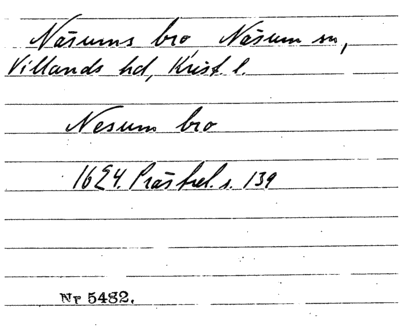 Näsums bro Näsum sn,
Villands hd, Krist. l.
Nesum bro
1624. Präsbrel. s. 139
Nr 5482.